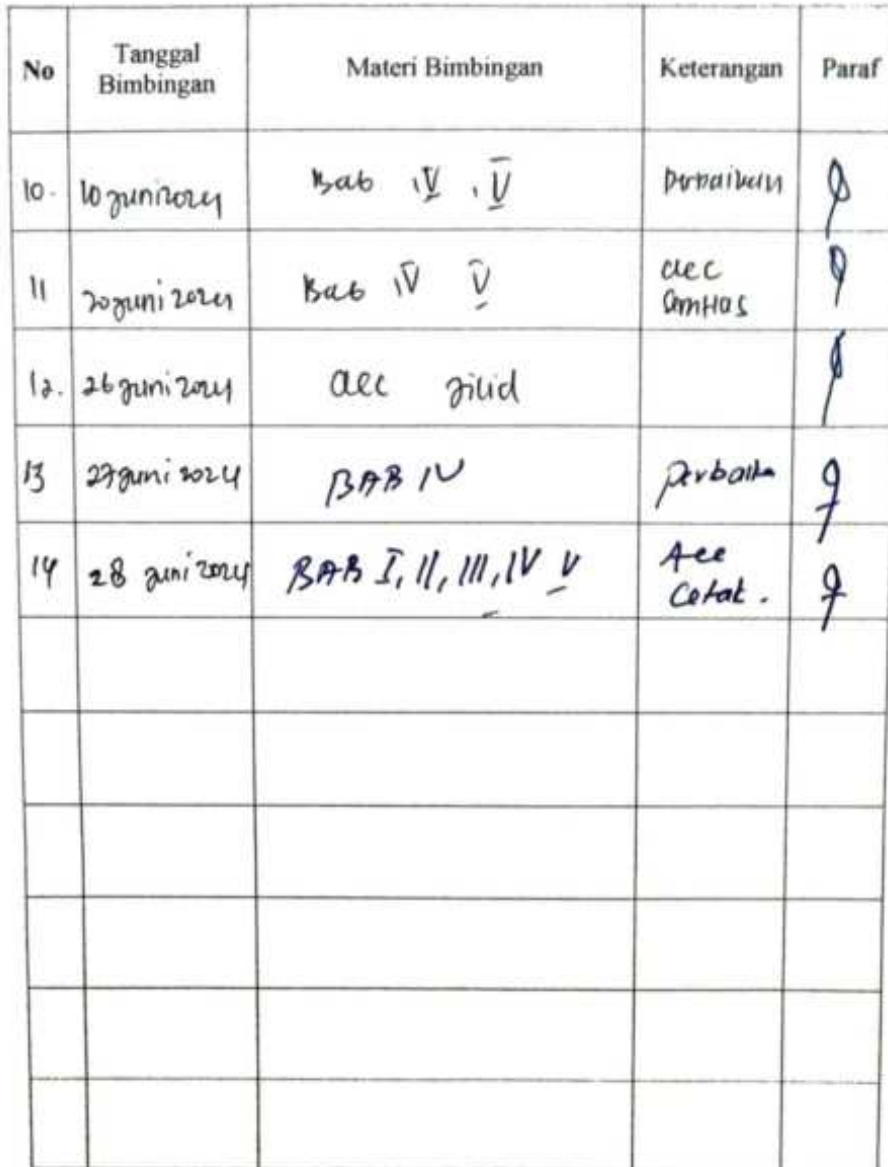 No Tanggal Bimbingan Materi Bimbingan Keterangan Paraf
10. 10 juni 2024 Bab IV, V Perbaikan
11 20 juni 2024 Bab IV V acc SemHas
12. 26 juni 2024 acc jilid
13 27 juni 2024 BAB IV Perbaika
14 28 juni 2024 BAB I, II, III, IV V Acc Cetak.